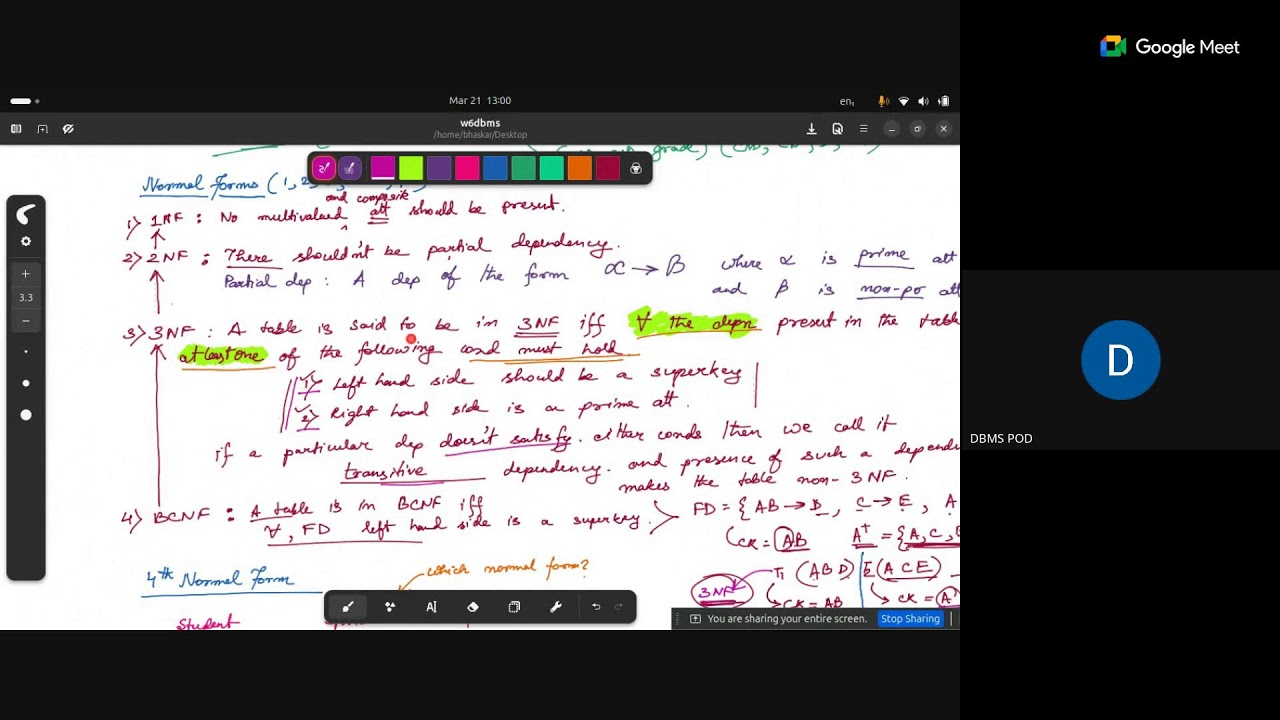 Google Meet
Mar 21 13:00
en₁
w6dbms
/home/bhaskar/Desktop
grade)
Normal Forms (1, 2,
and composite
1) 1NF : No multivalued att should be present.
2) 2NF : There shouldn't be partial dependency.
Partial dep : A dep of the form α → β where α is prime att
and β is non-pr att
3) 3NF : A table is said to be in 3NF iff ∀ the depn present in the table
atleast one of the following cond must hold
1) Left hand side should be a superkey
2) Right hand side is a prime att.
if a particular dep doesn't satisfy either conds then we call it
transitive dependency. and presence of such a depend
makes the table non-3NF.
4) BCNF : A table is in BCNF iff
∀, FD left hand side is a superkey.
FD = { AB → D, C → E, A
CK = AB A⁺ = {A, C,
4th Normal Form
which normal form?
3NF T₁ (ABD) (ACE)
CK = AB CK = (A
Student
3.3
You are sharing your entire screen.
Stop Sharing
D
DBMS POD